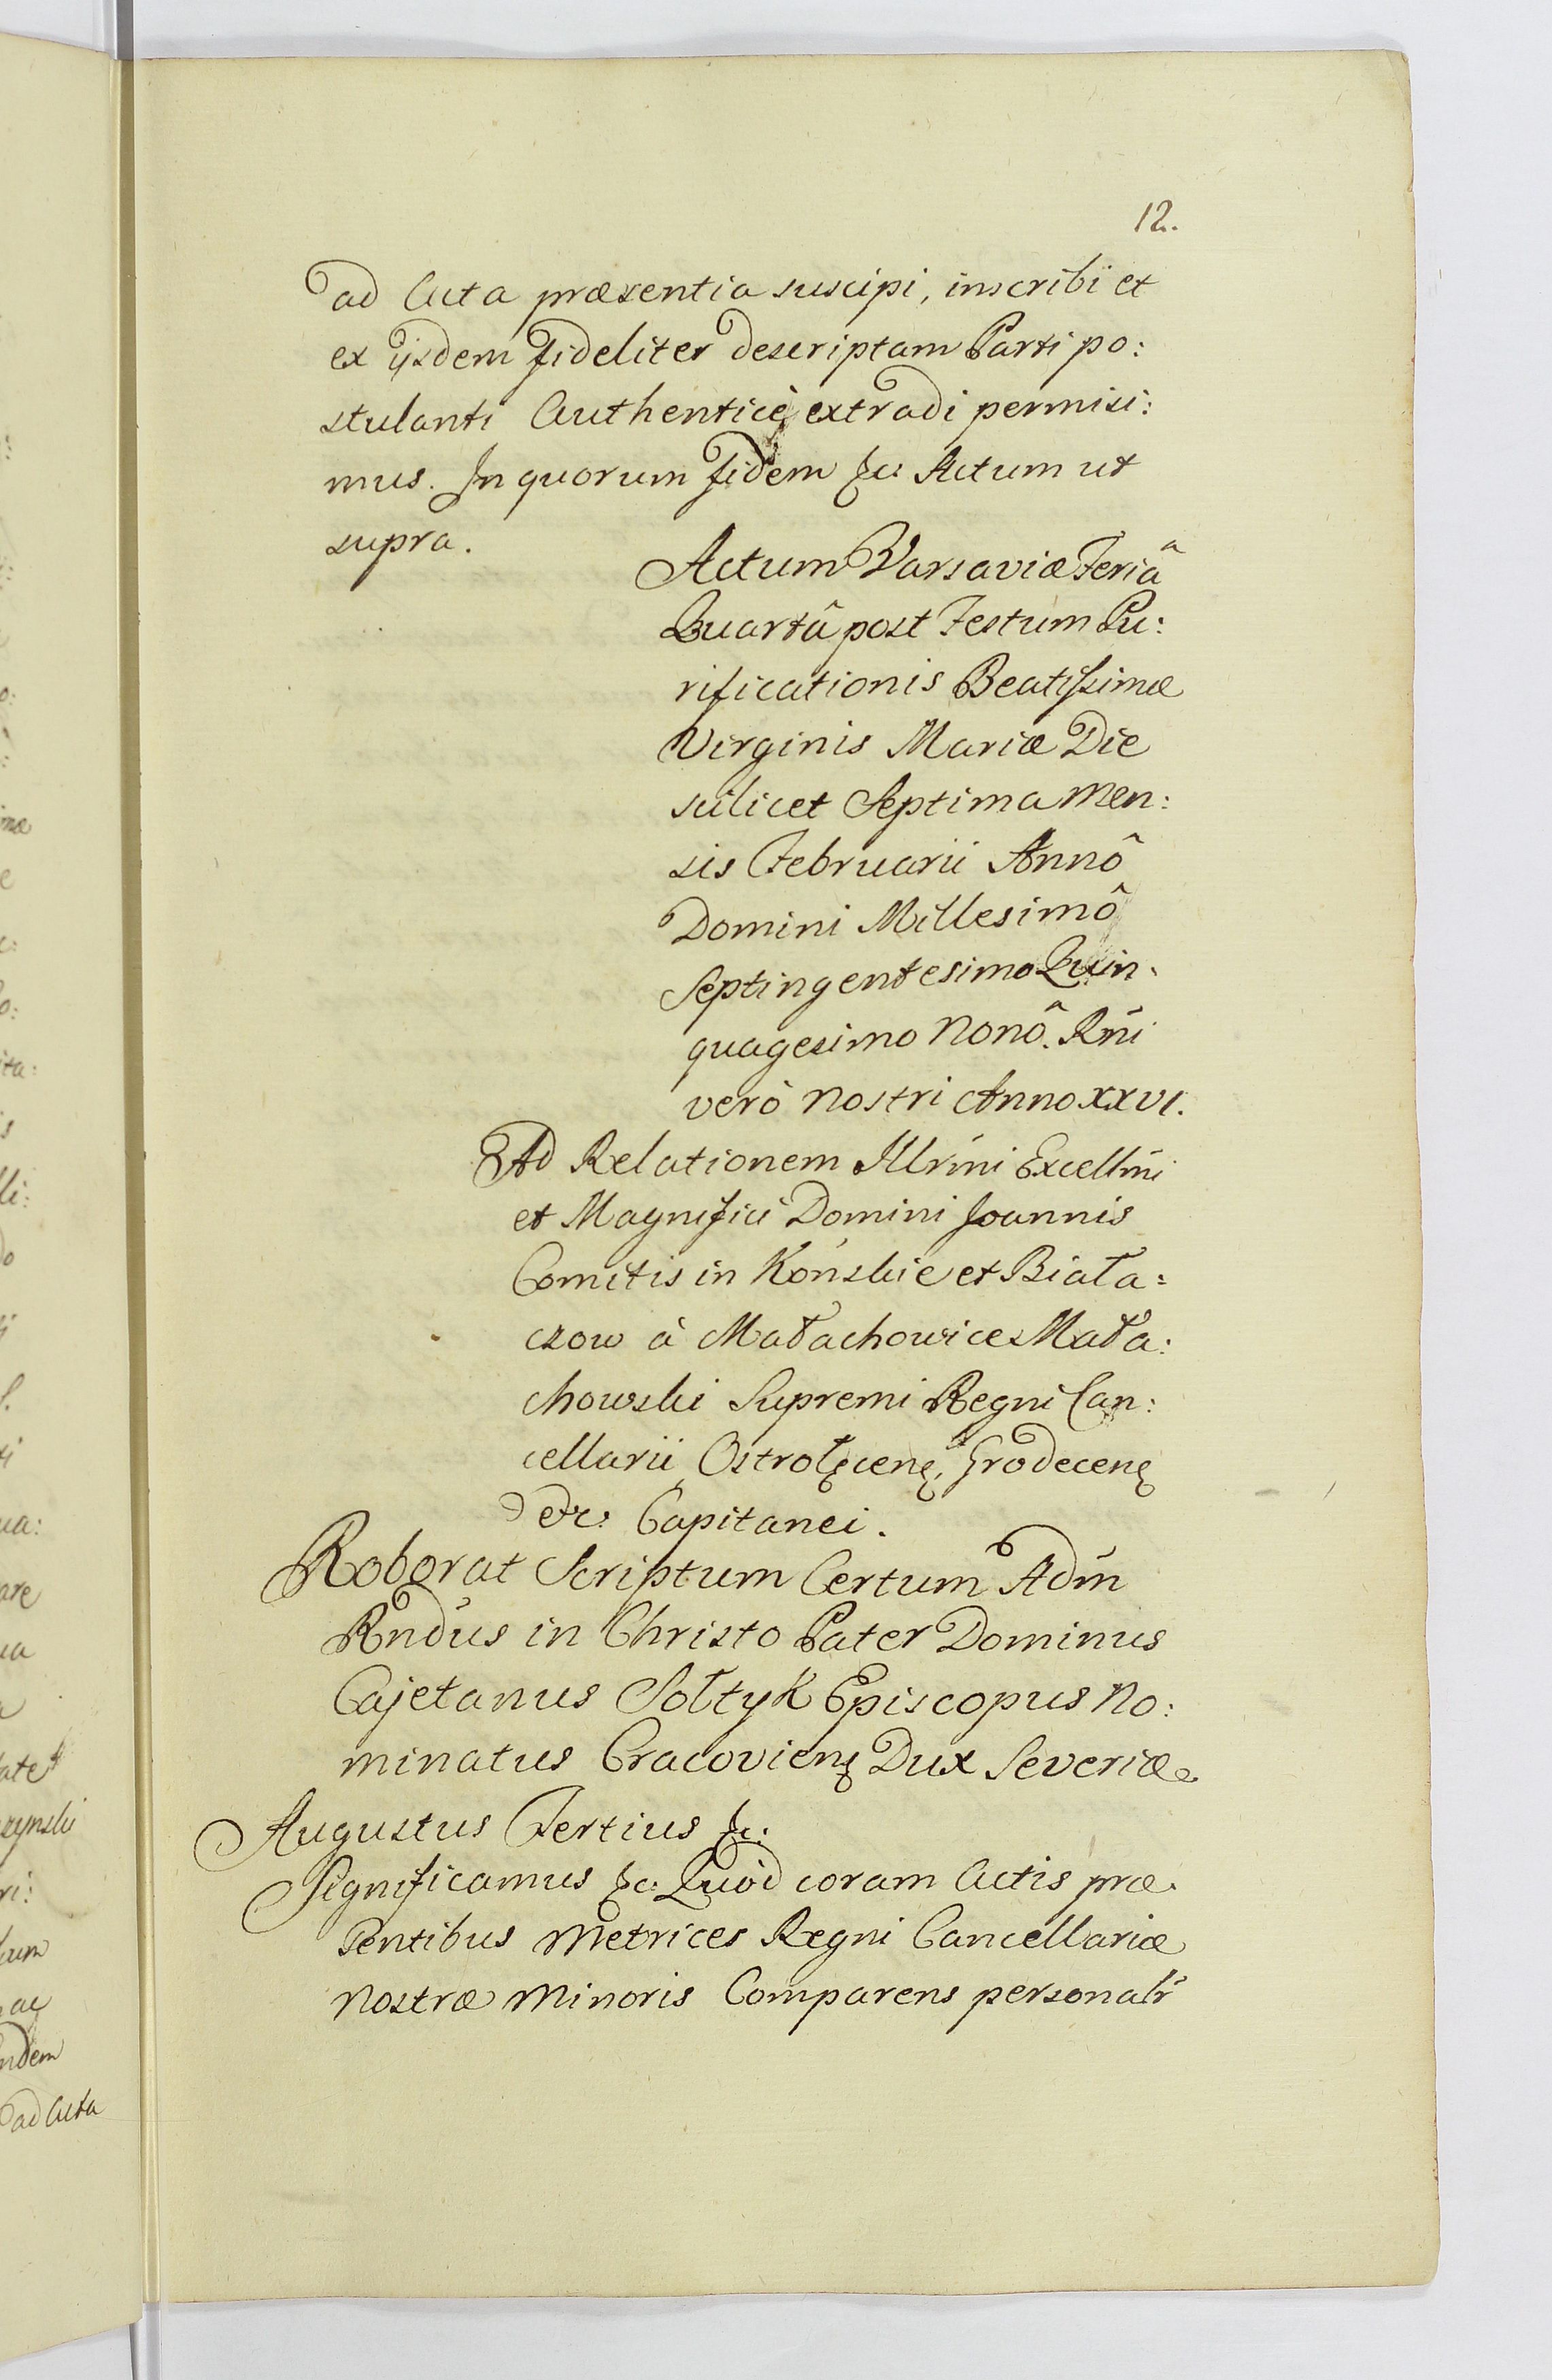 12.
ad Acta præsentia suscipi, inscribi et
ex ijsdem fideliter descriptam Parti po:
stulanti Authenticè extradi permisi:
mus. In quorum fidem &c: Actum ut
supra.
Actum Varsaviæ Feriâ
Quartâ post Festum Pu:
rificationis Beatissimæ
Virginis Mariæ Die
scilicet Septima Men:
sis Februarii Annô
Domini Millesimô
Septingentesimo Quin:
quagesimo Nonô. Rñi
verò Nostri Anno XXVI.
Ad Relationem Illrmi Excellmi
et Magnifici Domini Joannis
Comitis in Końskie et Biała:
czow à Małachowice Mała:
chowski Supremi Regni Can:
cellarii Ostrołęcenę, Grodecenę
etc: Capitanei.
Roborat Scriptum Certum Adm
Rndus in Christo Pater Dominus
Cajetanus Sołtyk Episcopus No:
minatus Cracovienę Dux Severiæ
Augustus Tertius &c:
Significamus &c: Quòd coram Actis præ
sentibus Metrices Regni Cancellariæ
Nostræ Minoris Comparens personalr
ate
zynski
ri:
um
ndem
ad Acta